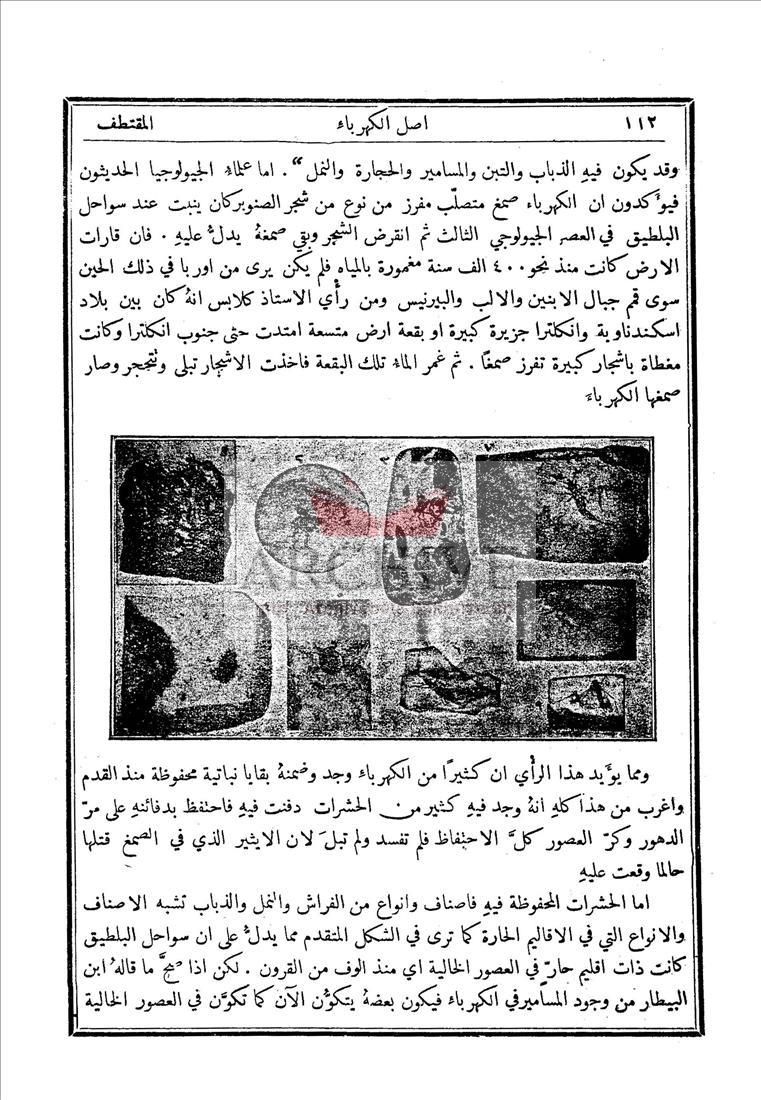 ١١٢ اصل الكهرباء المقتطف
وقد يكون فيهِ الذباب والتبن والمسامير والحجارة والنمل“ . اما علماءُ الجيولوجيا الحديثون
فيوءَكدون ان الكهرباء صمغ متصلّب مفرز من نوع من شجر الصنوبر كان ينبت عند سواحل
البلطيق في العصر الجيولوجي الثالث ثم انقرض الشجر وبقي صمغهُ يدلُّ عليهِ . فان قارات
الارض كانت منذ نحو ٤٠٠ الف سنة مغمورة بالمياه فلم يكن يرى من اوربا في ذلك الحين
سوى قمم جبال الابنين والالب والبيرنيس ومن رأْي الاستاذ كلابس انهُ كان بين بلاد
اسكندناوية وانكلترا جزيرة كبيرة او بقعة ارض متسعة امتدت حتى جنوب انكلترا وكانت
مغطاة باشجار كبيرة تفرز صمغًا . ثم غمر الماءُ تلك البقعة فاخذت الاشجار تبلى وتتحجر وصار
صمغها الكهرباءَ
٢
٣
٧
ARCHIVE
ومما يوءَيد هذا الرأْي ان كثيرًا من الكهرباءِ وجد وضمنهُ بقايا نباتية محفوظة منذ القدم
واغرب من هذا كلهِ انهُ وجد فيهِ كثير من الحشرات دفنت فيهِ فاحتفظ بدفائنهِ على مرّ
الدهور وكرّ العصور كلَّ الاحتفاظ فلم تفسد ولم تبلَ لان الايثير الذي في الصمغ قتلها
حالما وقعت عليهِ
اما الحشرات المحفوظة فيهِ فاصناف وانواع من الفراش والنمل والذباب تشبه الاصناف
والانواع التي في الاقاليم الحارة كما ترى في الشكل المتقدم مما يدلُّ على ان سواحل البلطيق
كانت ذات اقليم حارّ في العصور الخالية اي منذ الوف من القرون . لكن اذا صحَّ ما قالهُ ابن
البيطار من وجود المسامير في الكهرباءِ فيكون بعضهُ يتكوَّن الآن كما تكوَّن في العصور الخالية